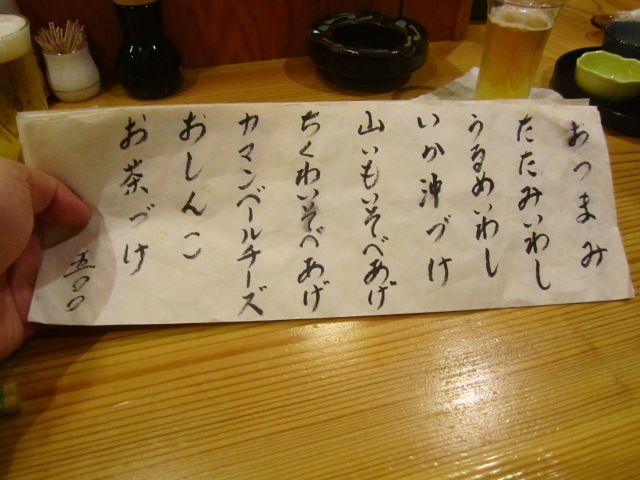 おつまみ
たたみいわし
うるめいわし
いか沖づけ
山いもいそべあげ
ちくわいそべあげ
カマンベールチーズ
おしんこ
お茶づけ
五〇〇